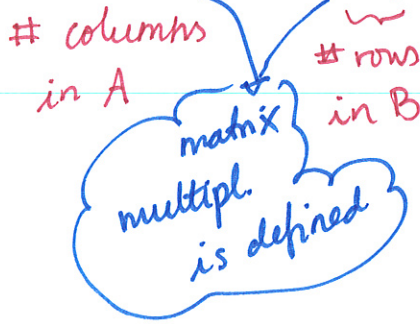 # columns
in A
# rows
in B
matrix
multipl.
is defined